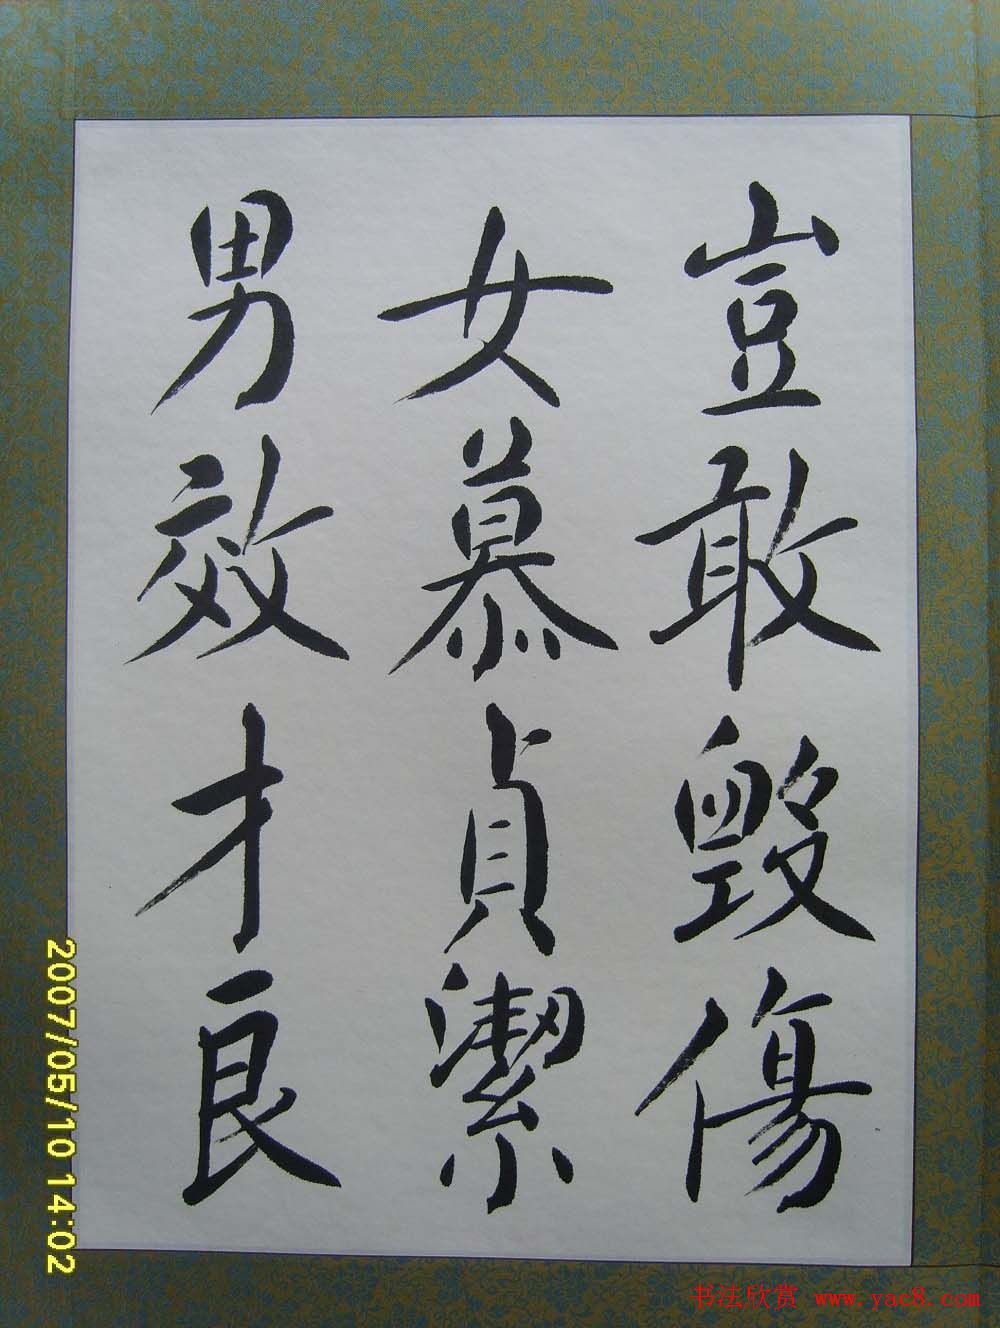 豈敢毀傷
女慕貞潔
男效才良
2007/05/10 14:02
书法欣赏 www.yac8.com